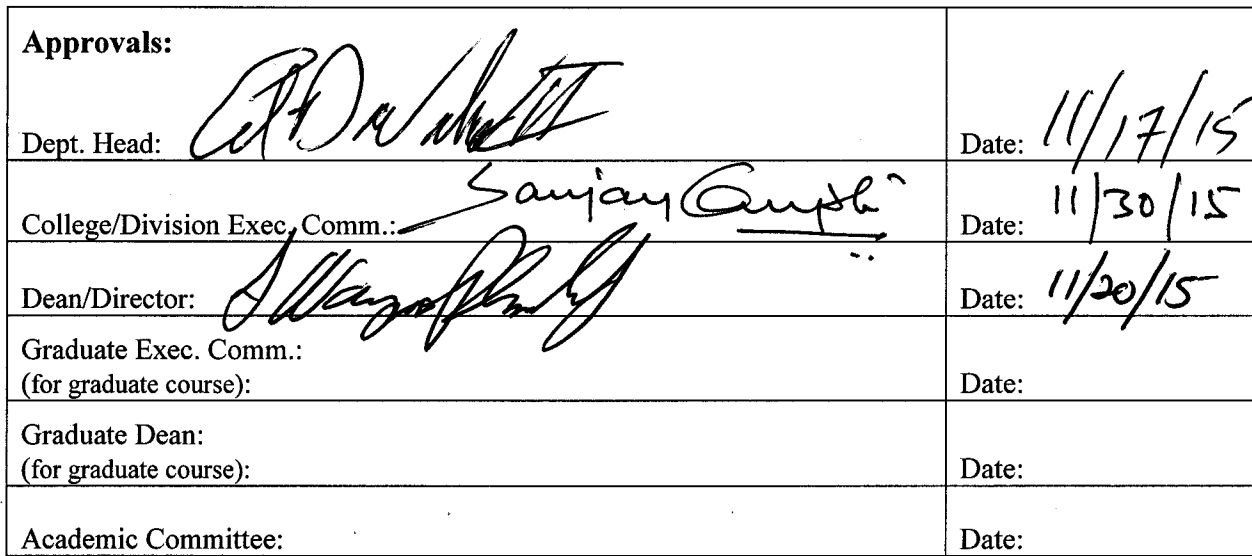 Approvals:
Dept. Head: Date: 11/17/15
College/Division Exec. Comm.: Sanjay Gupta Date: 11/30/15
Dean/Director: Date: 11/20/15
Graduate Exec. Comm.:
(for graduate course): Date:
Graduate Dean:
(for graduate course): Date:
Academic Committee: Date: